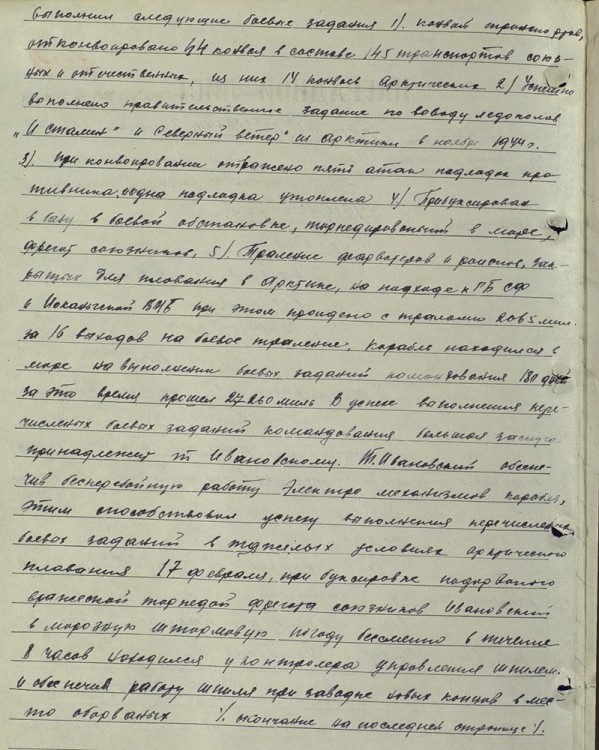 выполнил следующие боевые задания 1/. конвой транспортов,
отконвоировано 44 конвоя в составе 145 транспортов союз-
ных и отечественных, из них 14 конвоев Арктических 2/ Успешно
выполнено правительственное задание по выводу ледоколов
„И Сталин" и Северный ветер" из Арктики в ноябре 1944 г.
3/. При конвоировании отражено пять атак подлодок про-
тивника, одна подлодка утоплена 4/ Прибуксирован
в базу в боевой обстановке, торпедированный в море,
фрегат союзников, 5/ Траление фарватеров и районов, зак-
рытых для плавания в Арктике, на подходе к ГБ СФ
и Иоканьгской ВМБ при этом пройдено с тралами 2065 мил.
за 16 выходов на боевое траление, корабль находился в
море на выполнении боевых заданий командования 180 дней
за это время прошел 27260 миль В успехе выполнения пере-
численых боевых заданий командования большая заслуга
принадлежит т Ивановскому. Т. Ивановский обеспе-
чив бесперебойную работу электро механизмов корабля,
этим способствовал успеху выполнения перечисленых
боевых заданий в тяжелых условиях арктического
плавания 17 февраля, при буксировке подорваного
вражеской торпедой фрегата союзников Ивановский
в морозную штормовую погоду бессменно в течение
8 часов находился у контролера управления шпилем.
и обеспечил работу шпиля при заводке новых концов в мес-
то оборваных ./. окончание на последней странице ./.